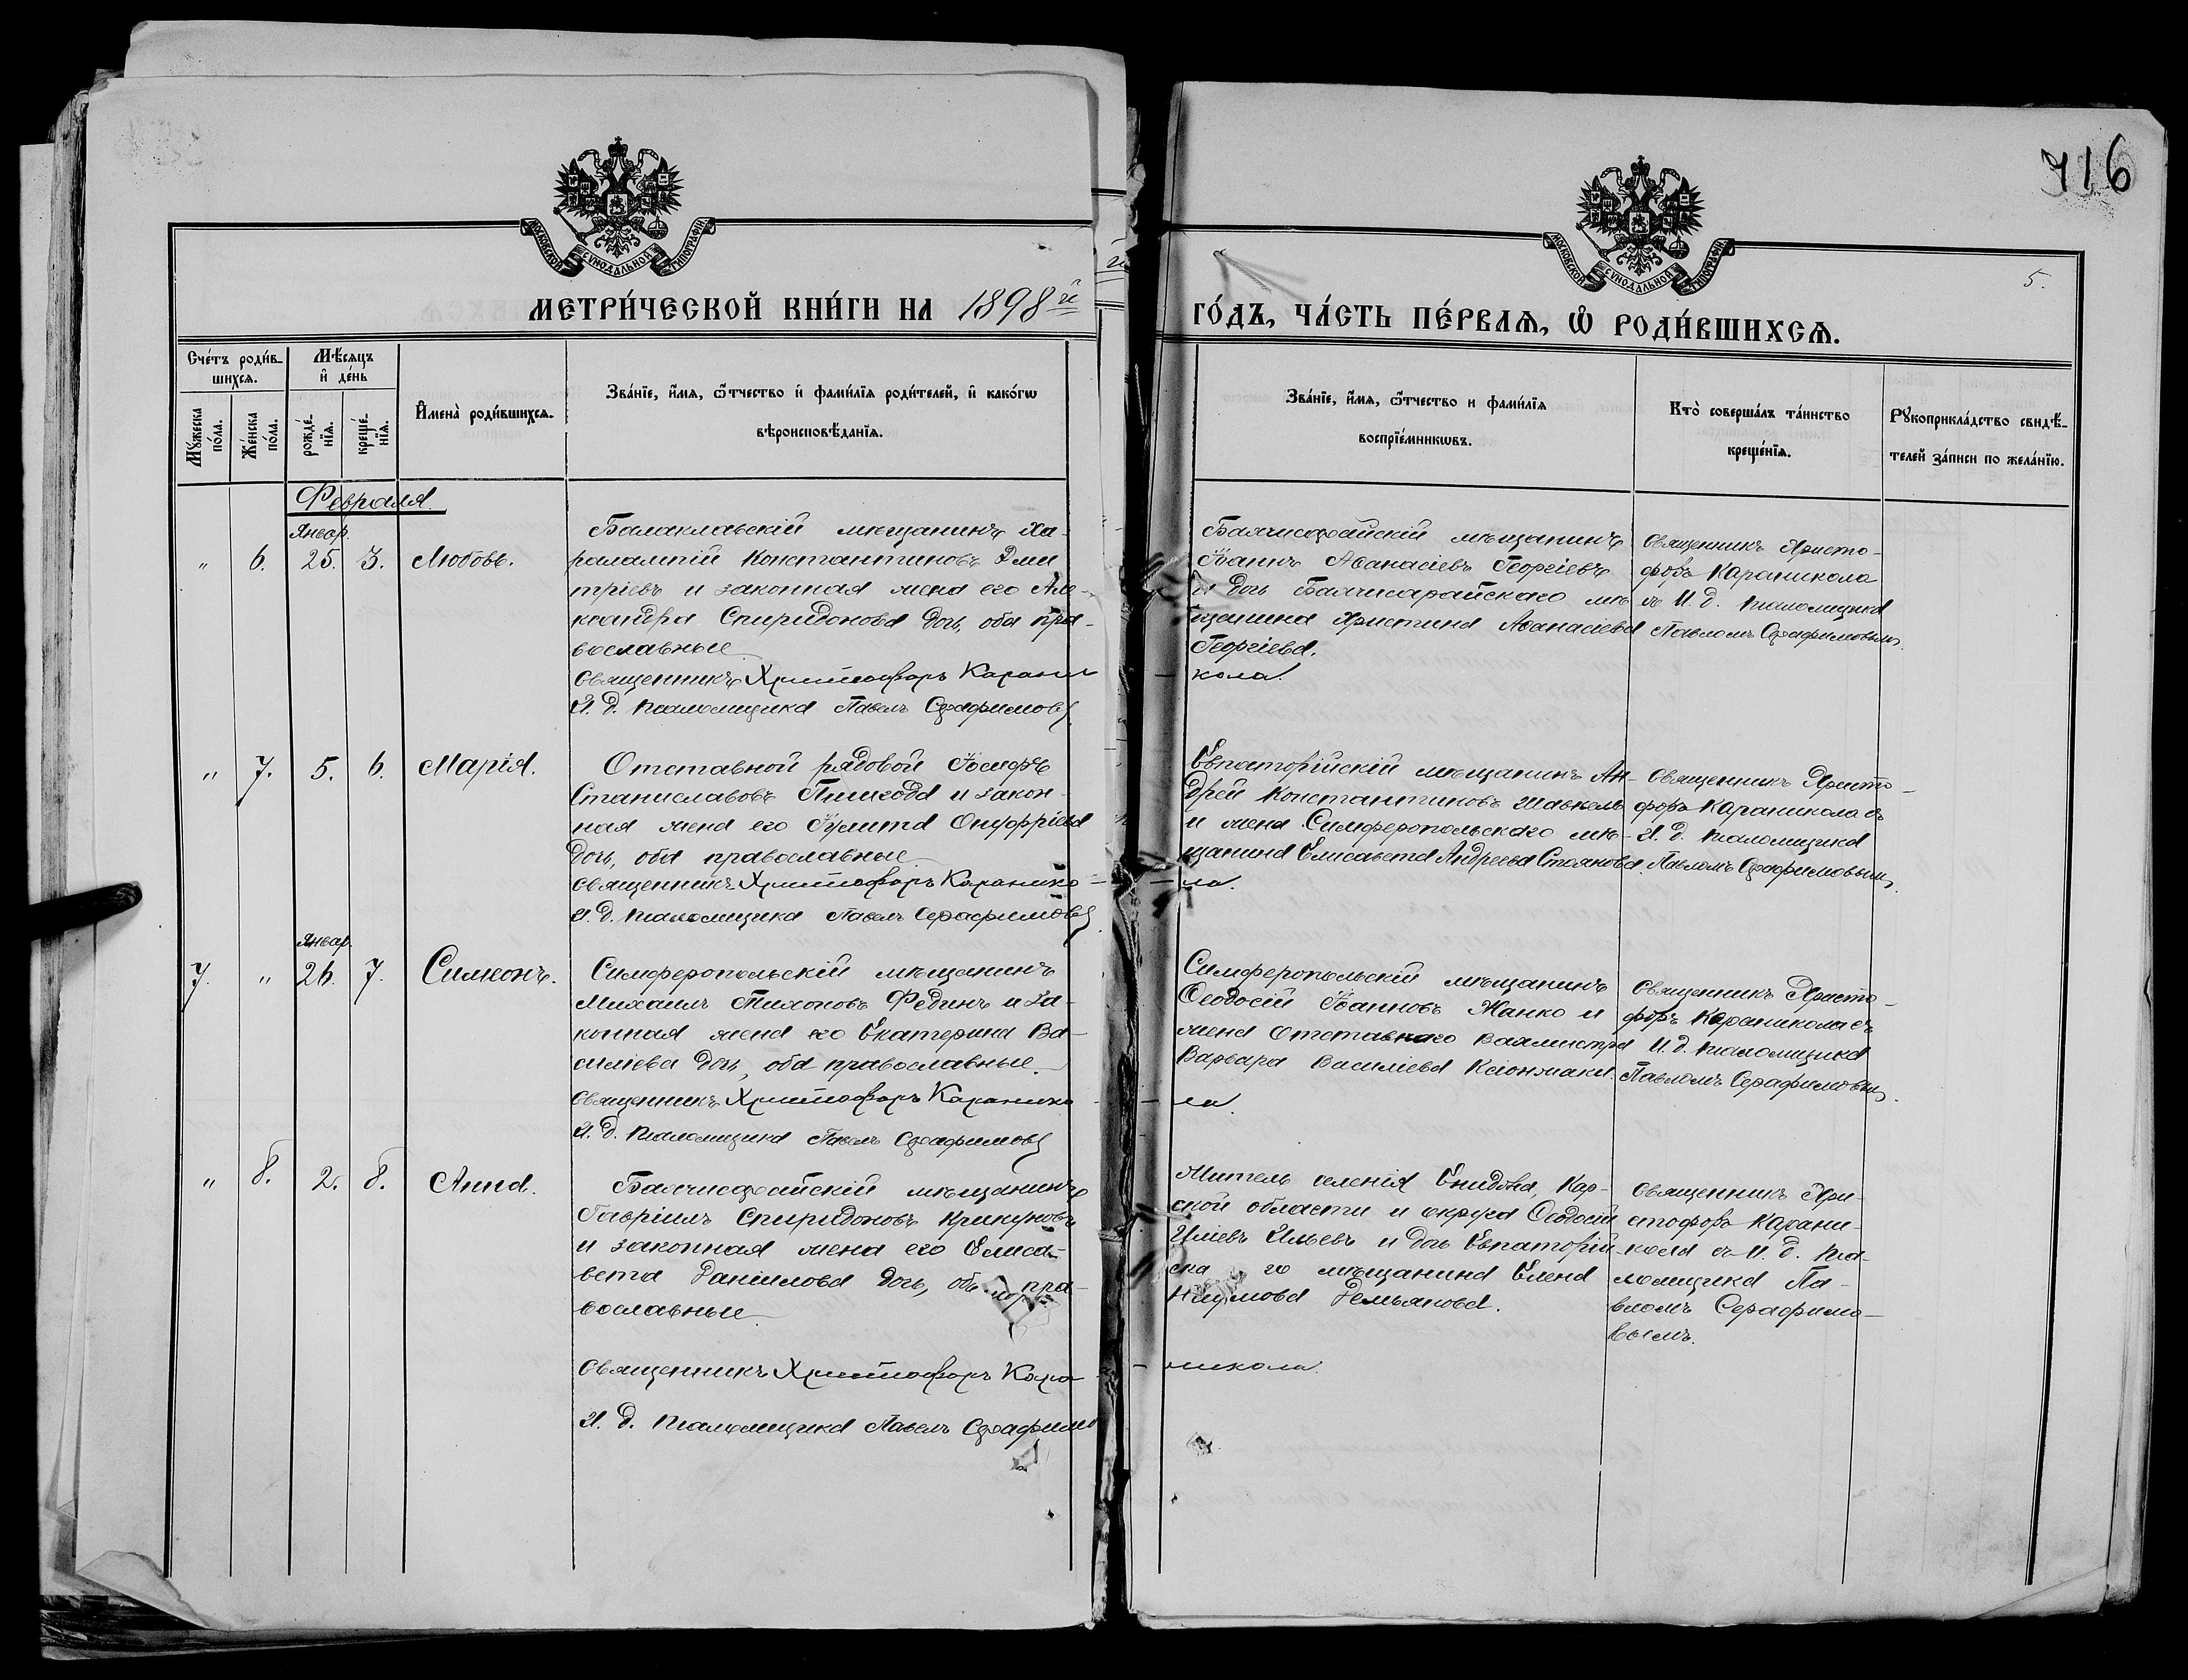 416
5.
МОСКОВСКОЙ СѴНОДАЛЬНОЙ ТИПОГРАФІИ
МОСКОВСКОЙ СѴНОДАЛЬНОЙ ТИПОГРАФІИ
МЕТРИ́ЧЕСКОЙ КНИ́ГИ НА 1898й
ГО́ДЪ, ЧА́СТЬ ПЕ́РВАѦ, Ѿ РОДИ́ВШИХСѦ.
Сче́тъ роди́в-
шихсѧ.
Мѣ́сѧцъ
и҆ де́нь
Мꙋжеска
по́ла.
Же́нска
по́ла.
рожде́-
нїѧ.
креще́-
нїѧ.
И҆мена̀ роди́вшихсѧ.
Зва́нїе, и҆́мѧ, ѻ҆́тчество и҆ фами́лїѧ роди́телей, и҆ како́гѡ
вѣроисповѣ́данїѧ.
Зва́нїе, и҆́мѧ, ѻ҆́тчество и фами́лїѧ
воспрїе́мникѡвъ.
Кто̀ соверша́лъ та́инство
креще́нїѧ.
Рꙋкоприкла́дство свидѣ́-
телей за́писи по жела́нїю.
Февраля.
Январ.
" 6. 25. 3. Любовь.
Балаклавскій мѣщанинъ Ха-
рлампій Константиновъ Дми
тріевъ и законная жена его Але-
ксандра Спиридонова дочь, оба пра-
вославные
Священникъ Христофоръ Карани
И. д. псаломщика Павелъ Серафимовъ
Бахчисарайскій мѣщанинъ
Іоаннъ Аѳанасіевъ Георгіевъ
и дочь Бахчисарайскаго мѣ
щанина Христина Аѳанасіева
Георгіева.
кола.
Священникъ Христо-
форъ Караникола
съ И. д. псаломщика
Павломъ Серафимовымъ.
" 7. 5. 6. Марія.
Отставной рядовой Іосифъ
Станиславовъ и закон-
ная жена его Іулита Онуфріева
дочь, оба православные
Священникъ Христофоръ Каранико-
И. д. псаломщика Павелъ Серафимовъ
Евпаторійскій мѣщанинъ Ан-
дрей Константиновъ
и жена Симферопольскаго мѣ-
щанина Елисавета Андреева Стоянова.
ла.
Священникъ Христо-
форъ Караникола съ
И. д. псаломщика
Павломъ Серафимовымъ.
Январ.
7. " 26. 7. Симеонъ.
Симферопольскій мѣщанинъ
Михаилъ Тихоновъ Фединъ и за-
конная жена его Екатерина Ва-
силіева дочь, оба православные.
Священникъ Христофоръ Каранико-
И. д. псаломщика Павелъ Серафимовъ
Симферопольскій мѣщанинъ
Ѳеодосій Іоанновъ Жанко и
жена Отставного Вахмистра
Варвара Василіева
ла.
Священникъ Христо-
форъ Караникола съ
И. д. псаломщика
Павломъ Серафимовымъ.
" 8. 2. 8. Анна.
Бахчисарайскій мѣщанинъ
Гавріилъ Спиридоновъ Крикуновъ
и законная жена его Елиса-
вета Даніилова дочь, оба пра-
вославные
Священникъ Христофоръ Кара-
И. д. псаломщика Павелъ Серафимо
Житель селенія Кар-
ской области и округа Ѳеодосій
Иліевъ Ильевъ и дочь Евпаторій-
ска го мѣщанина Елена
Наумова Демьянова.
никола.
Священникъ Хри-
стофоръ Карани-
кола съ И. д. пса-
ломщика Па-
вломъ Серафимо-
вымъ.